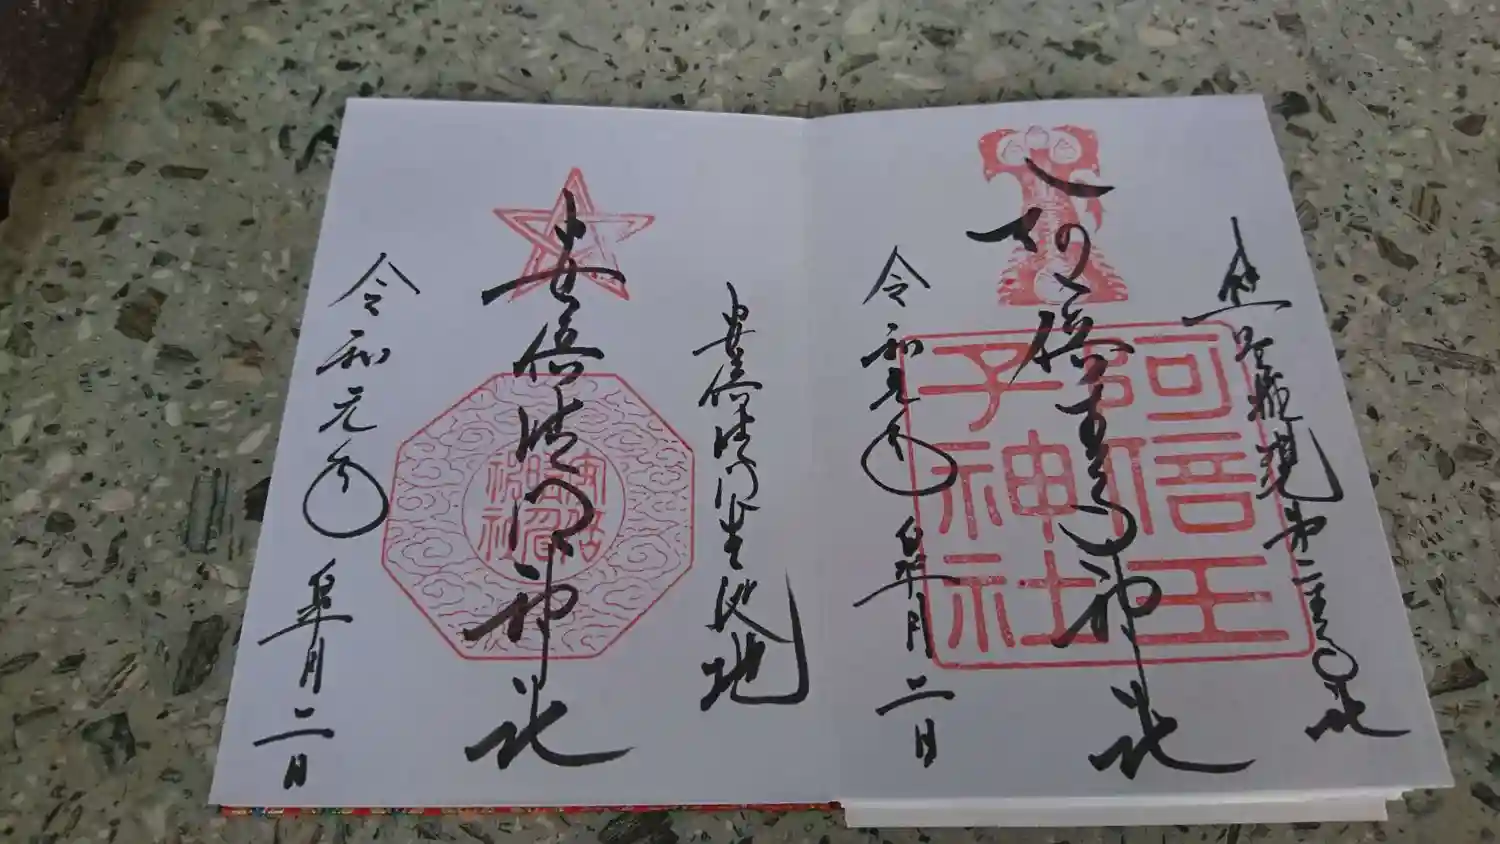 熊野権現第二王子社
阿倍王子神社
阿倍王子神社
令和元年
皐月二日
安倍晴明生誕地
安倍晴明神社
安倍晴明神社
令和元年
皐月二日